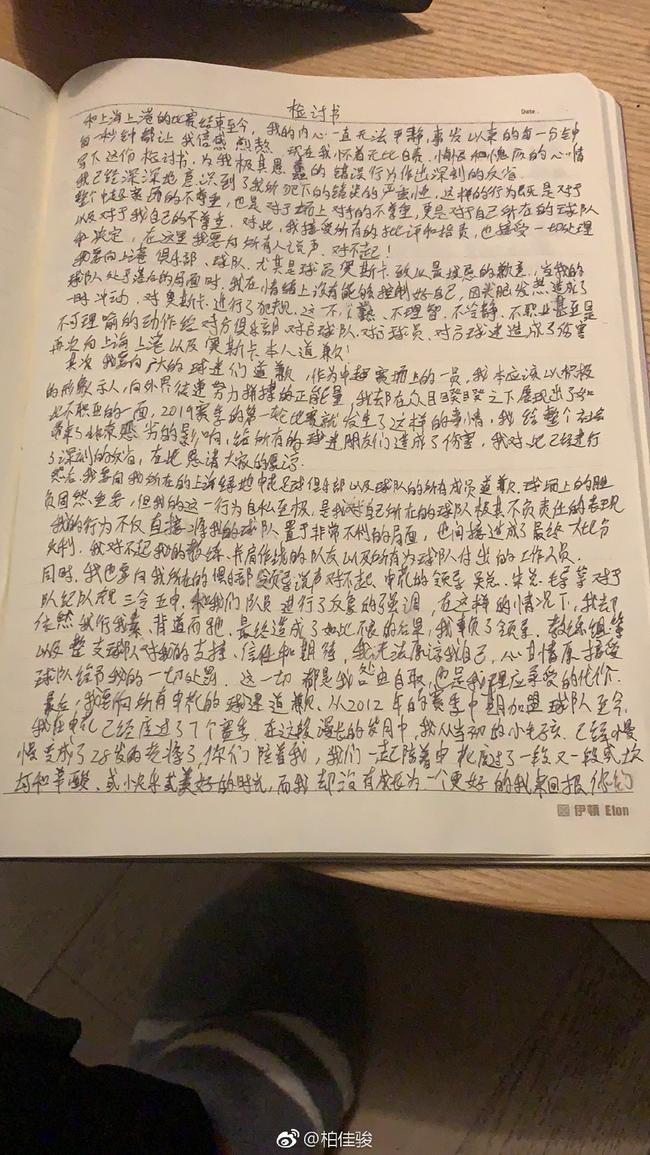 检讨书
Date.
和上海上港的比赛结束至今，我的内心一直无法平静，事发以来的每一分钟
每一秒钟都让我倍感煎熬。现在我怀着无比自责、悔恨和愧疚的心情
写下这份检讨书，为我极其愚蠢的错误行为作出深刻的反省
我已经深深地意识到了我所犯下的错误的严重性，这样的行为既是对于
整个中超赛场的不尊重，也是对于场上对手的不尊重，更是对于自己所在的球队
以及对于我自己的不尊重。对此，我接受所有的批评和指责，也接受一切处理
和决定，在这里我要向所有人说声：对不起！
我要向上港俱乐部、球队、尤其是球员奥斯卡致以最诚恳的歉意，当我的
球队处于落后的局面时，我在情绪上没有能够控制好自己，因头脑发热造成了
一时冲动，对奥斯卡进行了犯规，这一不 、不理智、不冷静、不职业甚至是
不可理喻的动作给对方俱乐部对方球队、对方球员、对方球迷造成了伤害
再次向上海上港以及奥斯卡本人道歉！
其次，我要向广大的球迷们道歉，作为中超赛场上的一员，我本应该以积极
的形象示人，向外界传递努力拼搏的正能量，我却在众目睽睽之下展现出了如
此不职业的一面，2019赛季的第一轮比赛就发生了这样的事情，我给整个社会
带来了非常恶劣的影响，给所有的球迷朋友们造成了伤害，我对此已经进行
了深刻的反省，在此恳请大家的原谅
然后，我要向我所在的上海绿地申花足球俱乐部以及球队的所有成员道歉，球场上的胜
负固然重要，但我的这一行为自私至极，是我对自己所在的球队极其不负责任的表现
我的行为不仅直接将我的球队置于非常不利的局面，也间接造成了最终大比分
失利。我对不起我的教练、并肩作战的队友以及所有为球队付出的工作人员。
同时，我也要向我所在的俱乐部领导说声对不起，申花的领导吴总、朱总、毛导等对于
队纪队规三令五申，和我们队员进行了反复的强调，在这样的情况下，我却
依然我行我素、背道而驰、最终造成了如此不良的后果，我辜负了领导、教练组等
以及整支球队对我的支持、信任和期待，我无法原谅我自己，心甘情愿接受
球队给予我的一切处罚。这一切都是我咎由自取，也是我理应承受的代价。
最后，我要向所有申花的球迷道歉，从2012年的赛季中期加盟球队至今，
我在申花已经度过了7个赛季，在这段漫长的岁月中，我从当初的小毛孩，已经慢
慢变成了28岁的老将了，你们陪着我，我们一起陪着申花度过了一段又一段或坎
坷和辛酸、或快乐或美好的时光，而我却没有成长为一个更好的我来回报你们
伊顿 Eton
@柏佳骏